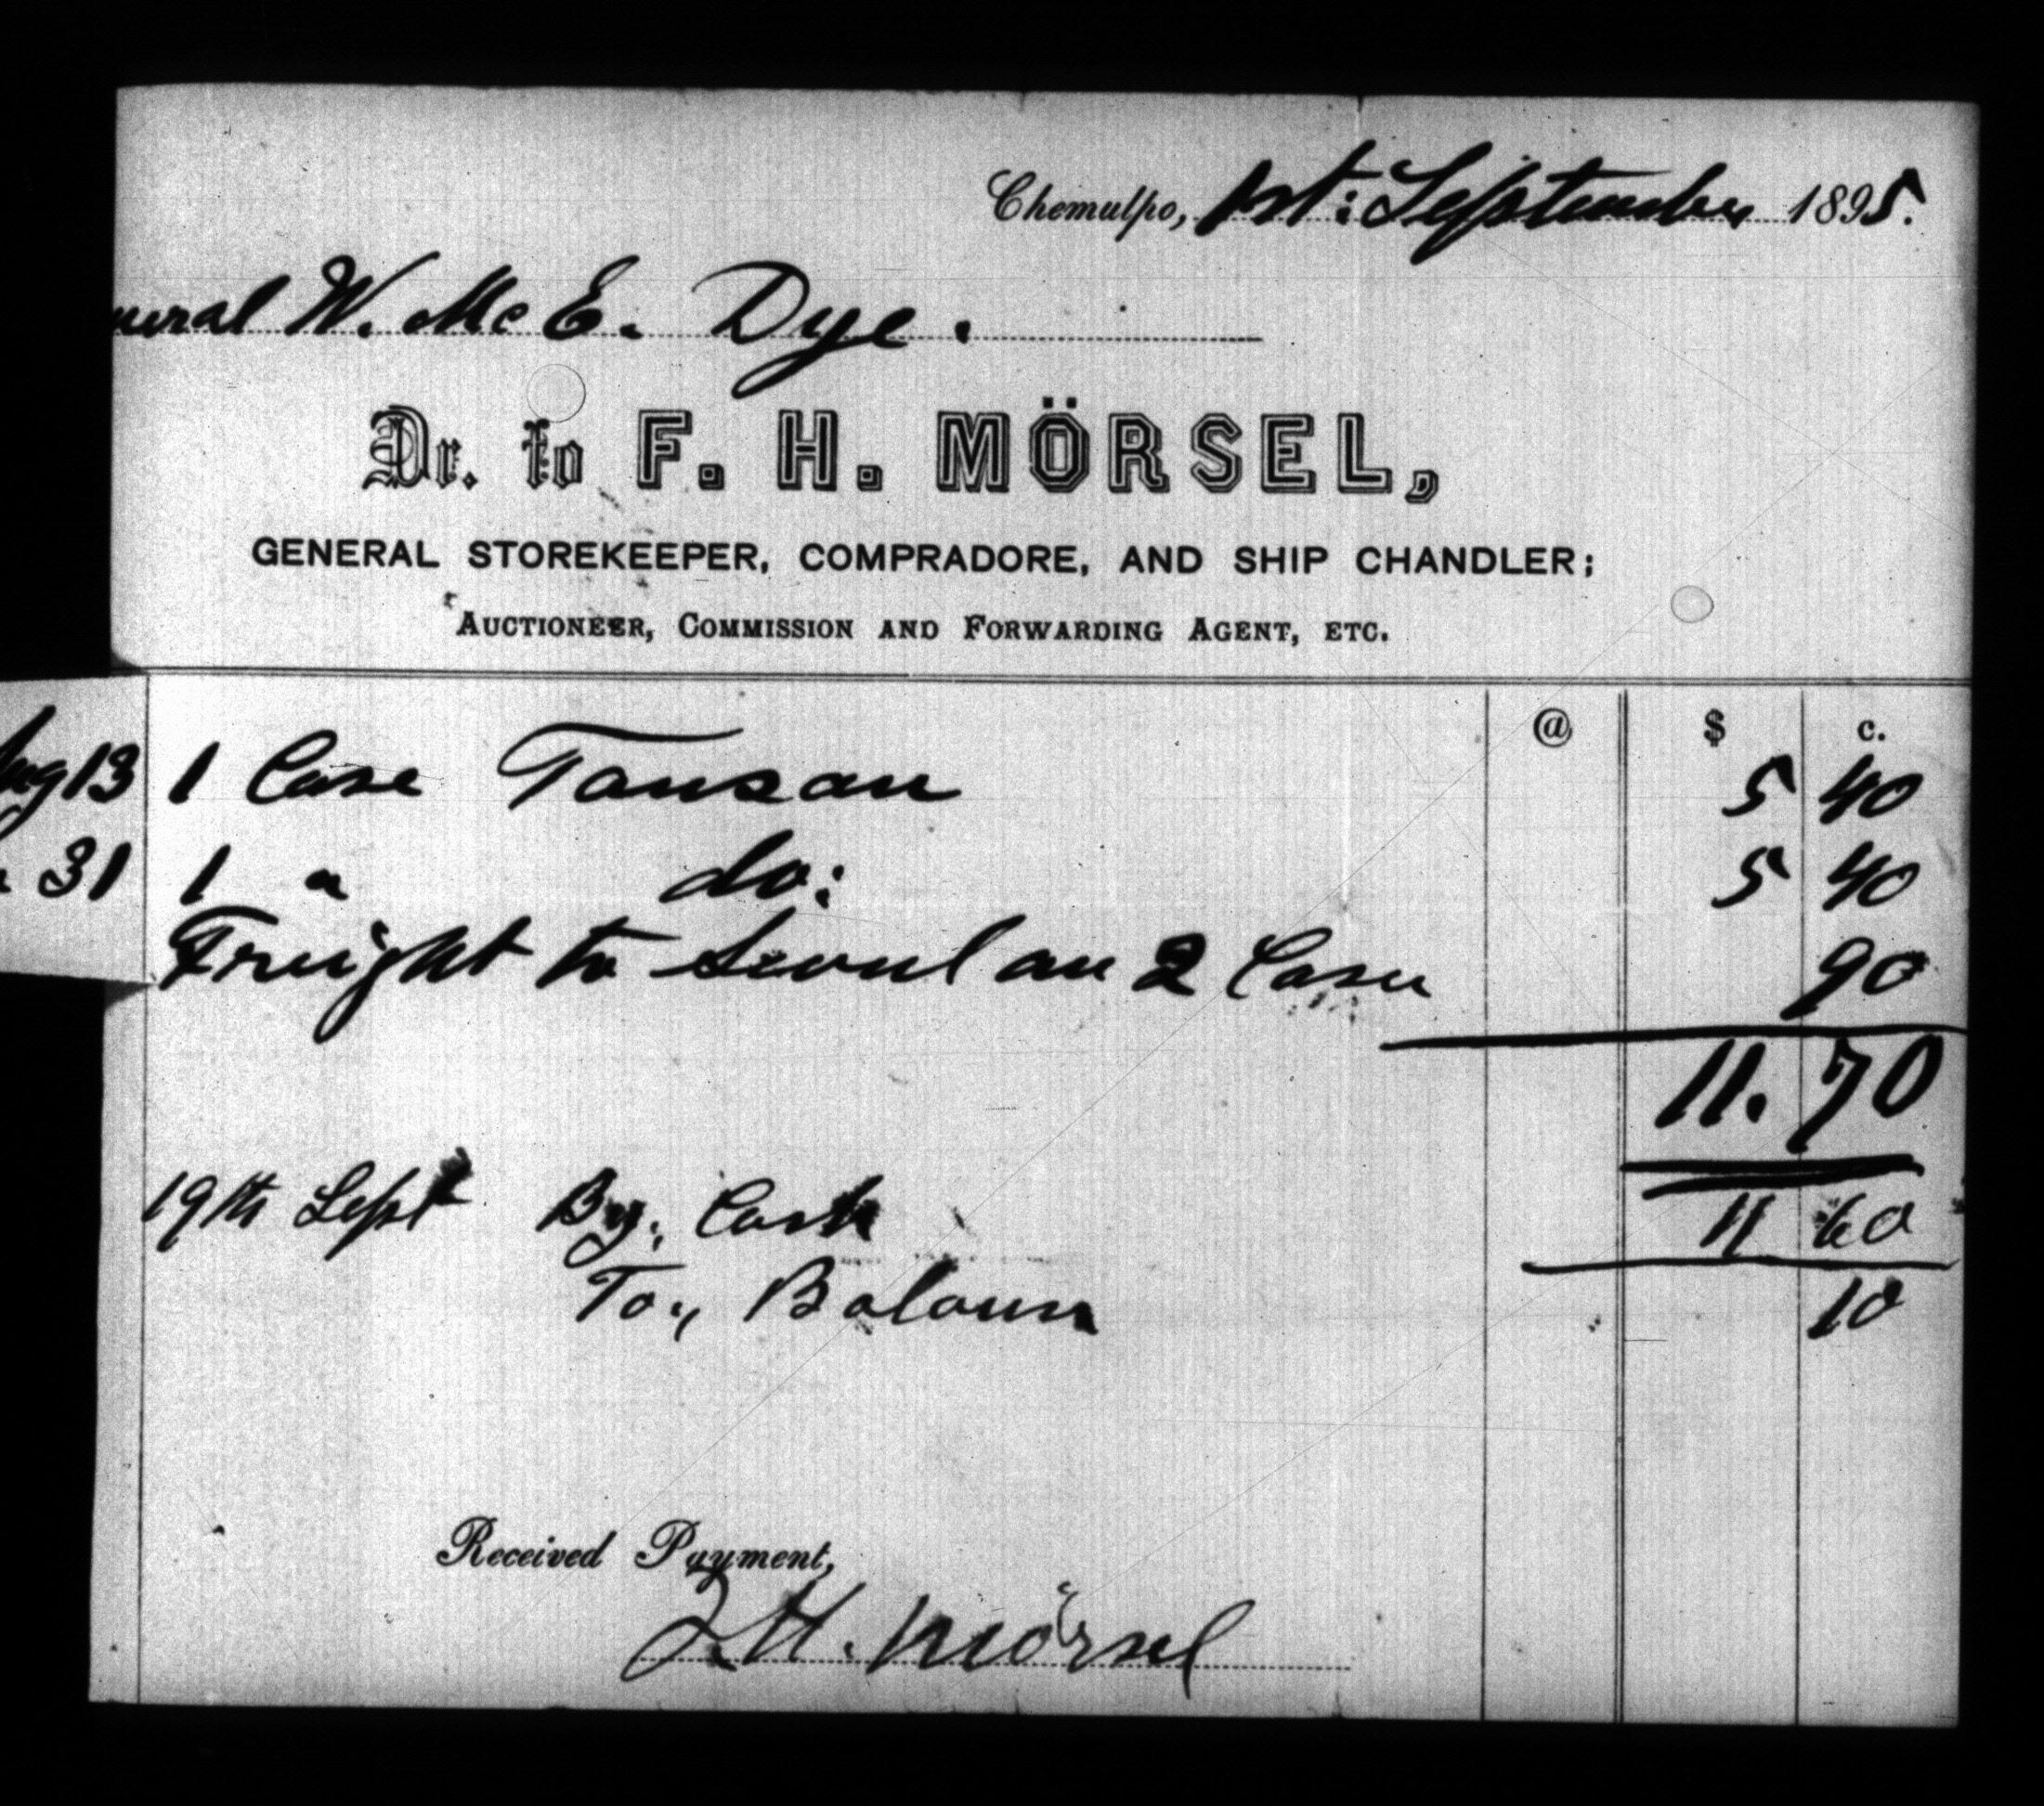 Chemulpo, 1st: September 1895.
neral W. Mc E. Dye.
Dr. to F. H. MÖRSEL,
GENERAL STOREKEEPER, COMPRADORE, AND SHIP CHANDLER;
AUCTIONEER, COMMISSION AND FORWARDING AGENT, ETC.
@ $ c.
Aug 13 1 Case Tansan 5 40
" 31 1 " do: 5 40
Freight to Seoul on 2 Cases 90
11. 70
19th Sept By, Cash 11 60
To, Balance 10
Received Payment,
F. H. Mörsel